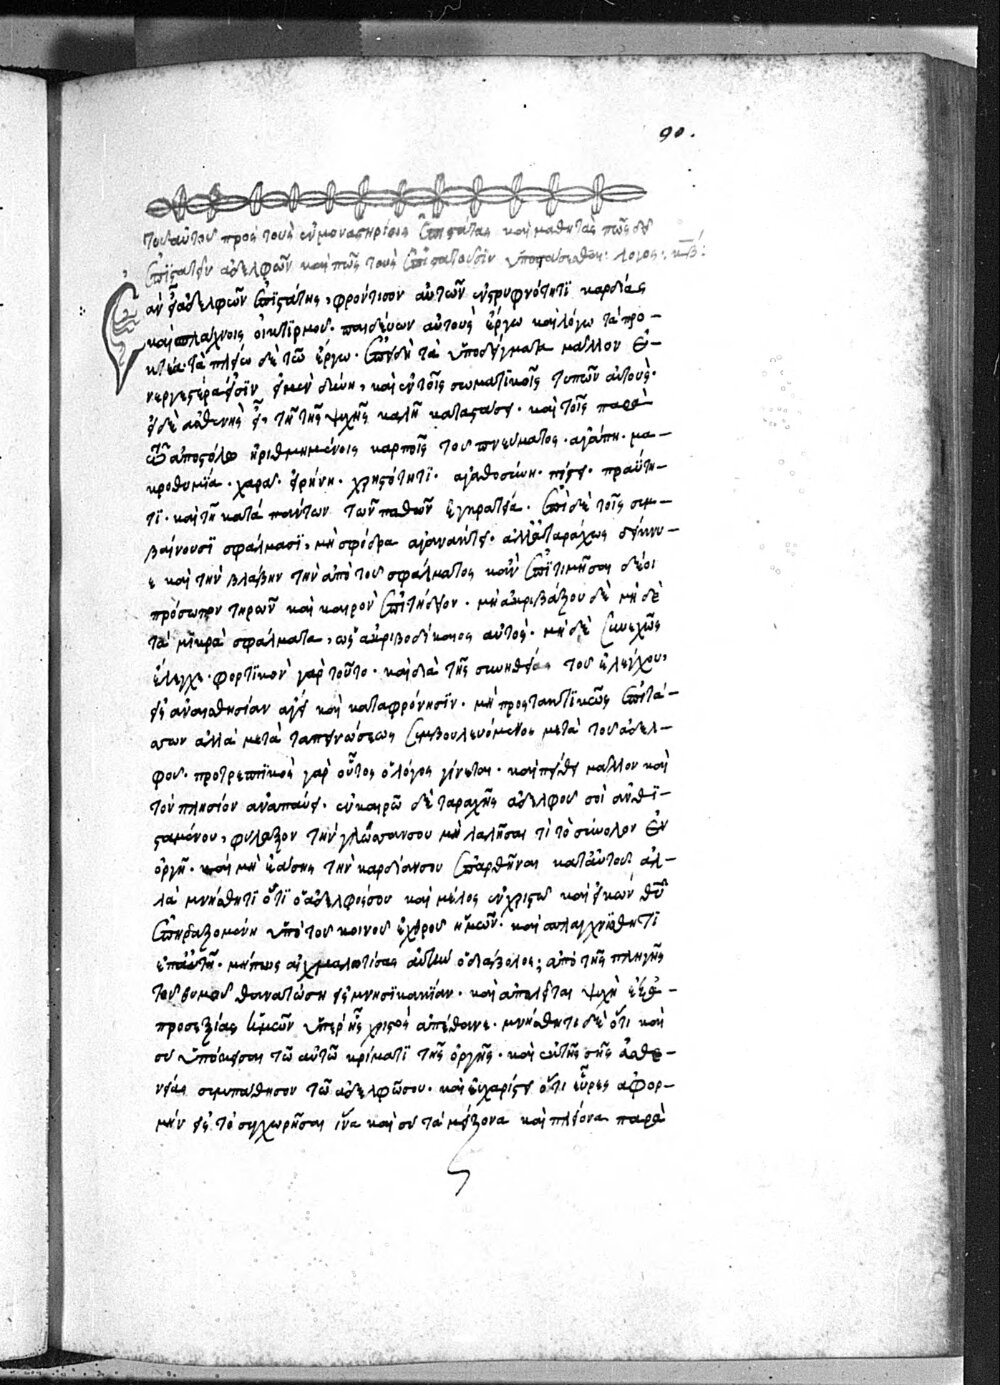 90.
τοῦ αὐτοῦ πρὸς τοὺς ἐν μοναστηρίοις ἐπιστάτας καὶ μαθητὰς πῶς δεῖ
ἐπιστατεῖν ἀδελφῶν καὶ πῶς τοὺς ἐπιστατοῦσιν ὑποτάσσεσθαι· λόγος· κβ:
Ἐὰν ᾖς ἀδελφῶν ἐπιστάτης, φρόντισον αὐτῶν ἐν στρυφνότητι καρδίας
καὶ σπλάχνοις οἰκτιρμοῦ· παιδεύων αὐτοὺς ἔργω καὶ λόγω τὰ πρα-
κτέα· τὰ πλείω δὲ τῶ ἔργω· ἐπειδὴ τὰ ὑποδείγματα μᾶλλον ἐ-
νεργέστερα εἰσὶν εἰ μὲν δύνη, καὶ ἐν τοῖς σωματικοῖς τυπῶν αὐτούς·
εἰ δὲ ἀσθενὴς εἶ, τῆ τῆς ψυχῆς καλῆ καταστάσει· καὶ τοῖς παρὰ
τοῦ ἀποστόλου ἠριθμημένοις καρποῖς τοῦ πνεύματος· ἀγάπη· μα-
κροθυμία· χαρᾶ· εἰρήνη· χρηστότητι· ἀγαθοσύνη· πίστει· πραΰτη-
τι· καὶ τῆ κατὰ πάντων τῶν παθῶν ἐγκρατεία· ἐπὶ δὲ τοῖς συμ-
βαίνουσι σφάλμασι, μὴ σφόδρα ἀγανάκτει· ἀλλ' ἀταράχως δείκνυ-
ε καὶ τὴν βλάβην τὴν ἀπὸ τοῦ σφάλματος κἂν ἐπιτιμῆσαι δέοι
πρόσωπον τηρῶν καὶ καιρὸν ἐπιτήδειον· μὴ ἀκριβάζου δὲ μὴ δὲ
τὰ μικρὰ σφάλματα, ὡς ἀκριβοδίκαιος αὐτός· μὴ δὲ συνεχῶς
ἔλεγχε· φορτικὸν γὰρ τοῦτο· καὶ διὰ τῆς συνηθείας τοῦ ἐλέγχου,
εἰς ἀναισθησίαν ἄγει καὶ καταφρόνησιν· μὴ προστακτικῶς ἐπιτά-
σσων ἀλλὰ μετὰ ταπεινώσεως συμβουλευόμενος μετὰ τοῦ ἀδελ-
φοῦ· προτρεπτικὸς γὰρ οὗτος ὁ λόγος γίνεται· καὶ πείθει μᾶλλον καὶ
τὸν πλησίον ἀναπαύει· ἐν καιρῶ δὲ ταραχῆς ἀδελφοῦ σοι ἀνθι-
σταμένου, φύλαξον τὴν γλῶσσαν σου μὴ λαλῆσαι τι τὸ σύνολον ἐν
ὀργῆ· καὶ μὴ ἐάσης τὴν καρδίαν σου ἐπαρθῆναι κατ' αὐτοῦ ἀλ-
λὰ μνήσθητι ὅτι ὁ ἀδελφός σου καὶ μέλος ἐν χριστῶ καὶ εἰκὼν θῦ
ἐπηρεαζομένη ὑπὸ τοῦ κοινοῦ ἐχθροῦ ἡμῶν· καὶ σπλαγχνίσθητι
ἐπ' αὐτῆ· μήπως αἰχμαλωτίσας αὐτὴν ὁ διάβολος· ἀπὸ τῆς πληγῆς
τοῦ θυμοῦ θανατώση εἰς μνησικακίαν· καὶ ἀπόλειται ψυχὴ ἐξ ἀ-
προσεξίας ἡμῶν ὑπὲρ ἧς χριστὸς ἀπέθανε· μνήσθητι δὲ ὅτι καὶ
σὺ ὑπόκεισαι τῶ αὐτῶ κρίματι τῆς ὀργῆς· καὶ ἐκ τῆς σῆς ἀσθε-
νείας συμπάθησον τῶ ἀδελφῶ σου· καὶ εὐχαρίστει ὅτι εὗρες ἀφορ-
μὴν εἰς τὸ συγχωρῆσαι ἵνα καὶ σὺ τὰ μείζονα καὶ πλείονα παρὰ